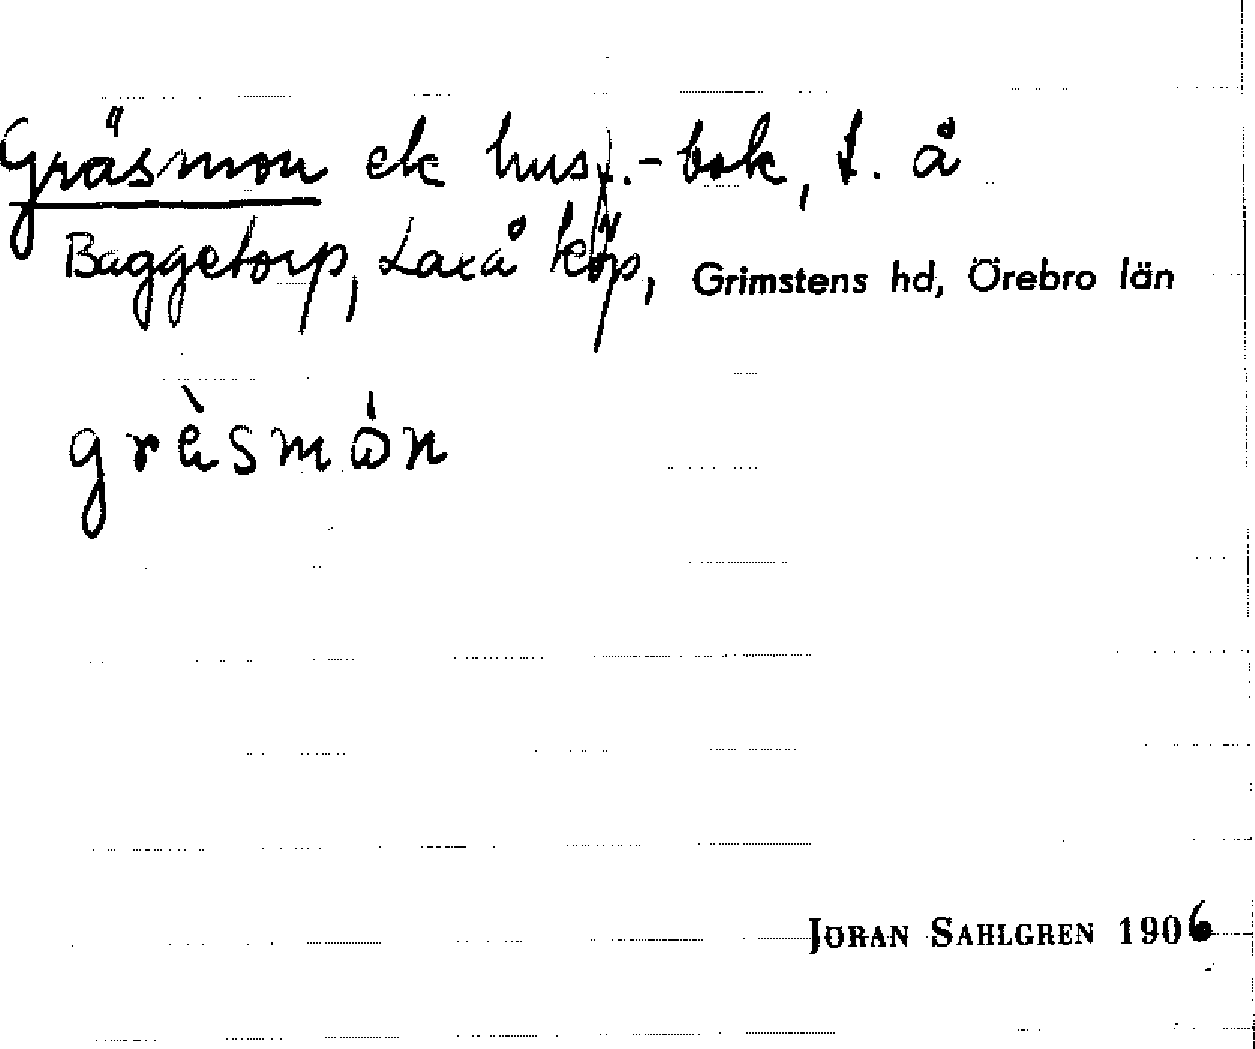 Gräsmon ek husf.-bok, t. å
Baggetorp, Laxå köp, Grimstens hd, Örebro län
grèsmòn
JÖRAN SAHLGREN 1906